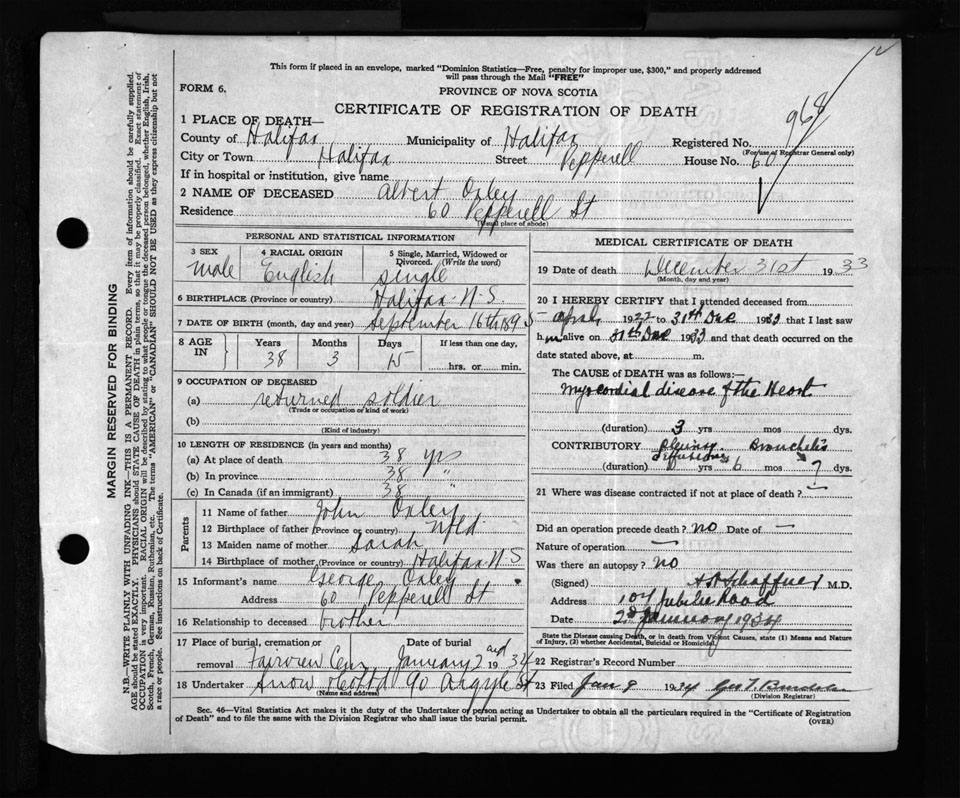 This form if placed in an envelope, marked "Dominion Statistics—Free, penalty for improper use, $300," and properly addressed
will pass through the Mail "FREE"
FORM 6.
PROVINCE OF NOVA SCOTIA
CERTIFICATE OF REGISTRATION OF DEATH
968
1 PLACE OF DEATH—
County of Halifax Municipality of Halifax Registered No.
(For use of Registrar General only)
City or Town Halifax Street Pepperell House No. 60
If in hospital or institution, give name
2 NAME OF DECEASED Albert Oxley
Residence 60 Pepperell St
(Usual place of abode)
MARGIN RESERVED FOR BINDING
N.B.—WRITE PLAINLY WITH UNFADING INK—THIS IS A PERMANENT RECORD. Every item of information should be carefully supplied.
AGE should be stated EXACTLY. PHYSICIANS should STATE CAUSE OF DEATH in plain terms, so that it may be properly classified. Exact statement of
OCCUPATION is very important. RACIAL ORIGIN will be described by stating to what people or tongue the deceased person belonged, whether English, Irish,
Scotch, French, German, Russian, Ruthenian, etc. The terms "AMERICAN" or "CANADIAN" SHOULD NOT BE USED as they express citizenship but not
a race or people. See instructions on back of Certificate.
PERSONAL AND STATISTICAL INFORMATION
3 SEX
male
4 RACIAL ORIGIN
English
5 Single, Married, Widowed or
Divorced. (Write the word)
single
6 BIRTHPLACE (Province or country) Halifax N.S.
7 DATE OF BIRTH (month, day and year) September 16th 1895
8 AGE IN
Years Months Days If less than one day,
38 3 15 hrs. or min.
9 OCCUPATION OF DECEASED
(a) returned soldier
(Trade or occupation or kind of work)
(b)
(Kind of industry)
10 LENGTH OF RESIDENCE (in years and months)
(a) At place of death 38 yrs
(b) In province 38 "
(c) In Canada (if an immigrant) 38 "
Parents
11 Name of father John Oxley
12 Birthplace of father (Province or country) Nfld
13 Maiden name of mother Sarah
14 Birthplace of mother (Province or country) Halifax N S
15 Informant's name George Oxley
Address 60 Pepperell St
16 Relationship to deceased brother
17 Place of burial, cremation or removal Fairview Cem
Date of burial January 2nd 1934
18 Undertaker Snow & Co Ltd 90 Argyle St
(Name and address)
MEDICAL CERTIFICATE OF DEATH
19 Date of death December 31st 1933
(Month, day and year)
20 I HEREBY CERTIFY that I attended deceased from
April, 1922 to 31st Dec 1933 that I last saw
him alive on 31st Dec 1933 and that death occurred on the
date stated above, at m.
The CAUSE of DEATH was as follows:—
Myocardial disease of the Heart
(duration) 3 yrs mos dys.
CONTRIBUTORY Bronchitis
(duration) yrs 6 mos ? dys.
21 Where was disease contracted if not at place of death? —
Did an operation precede death? no Date of —
Nature of operation —
Was there an autopsy? no
(Signed) Schaffner M.D.
Address 104 Jubilee Road
Date 2d January 1934
State the Disease causing Death, or in death from Violent Causes, state (1) Means and Nature
of Injury, (2) whether Accidental, Suicidal or Homicidal.
22 Registrar's Record Number
23 Filed Jan 9 1934
(Division Registrar)
Sec. 46—Vital Statistics Act makes it the duty of the Undertaker or person acting as Undertaker to obtain all the particulars required in the "Certificate of Registration
of Death" and to file the same with the Division Registrar who shall issue the burial permit.
(OVER)